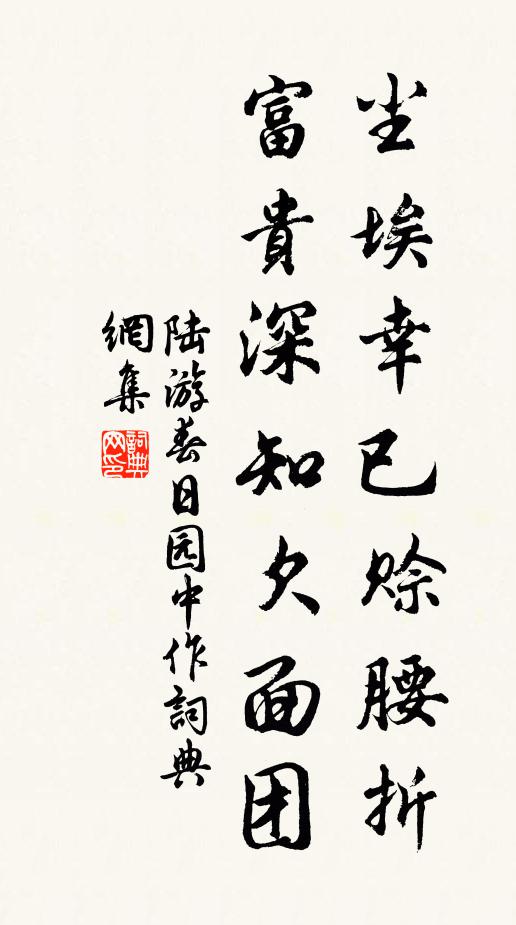 尘埃幸已赊腰折
富貴深知欠面团
陆游春日园中作詞典
網集
詞典网印